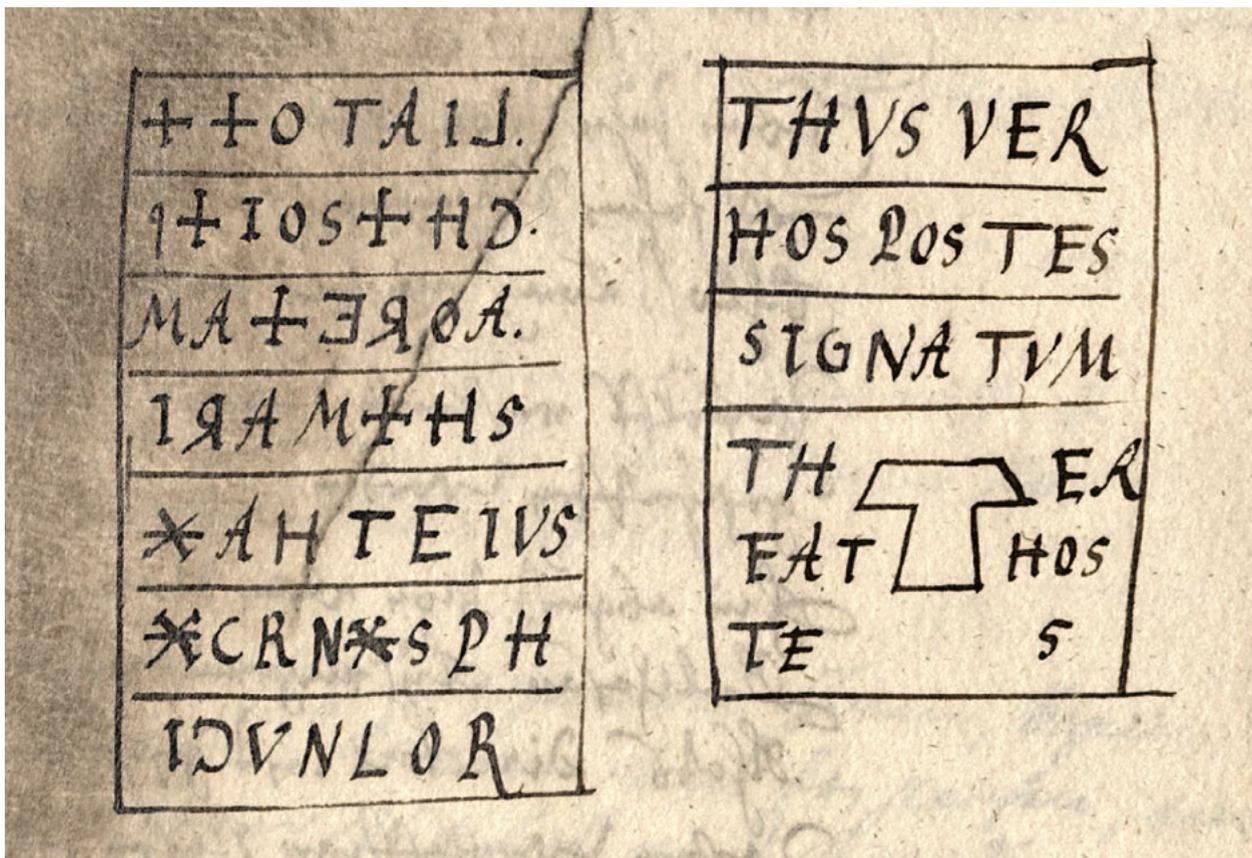 ++OTAIL.
q+IOS+HD.
MA+EROA.
IRAM+HS
*AHTEIVS
*CRN*SPH
IƆVNLOR
THVS VER
HOS POSTES
SIGNATVM
TH T ER
EAT HOS
TE S